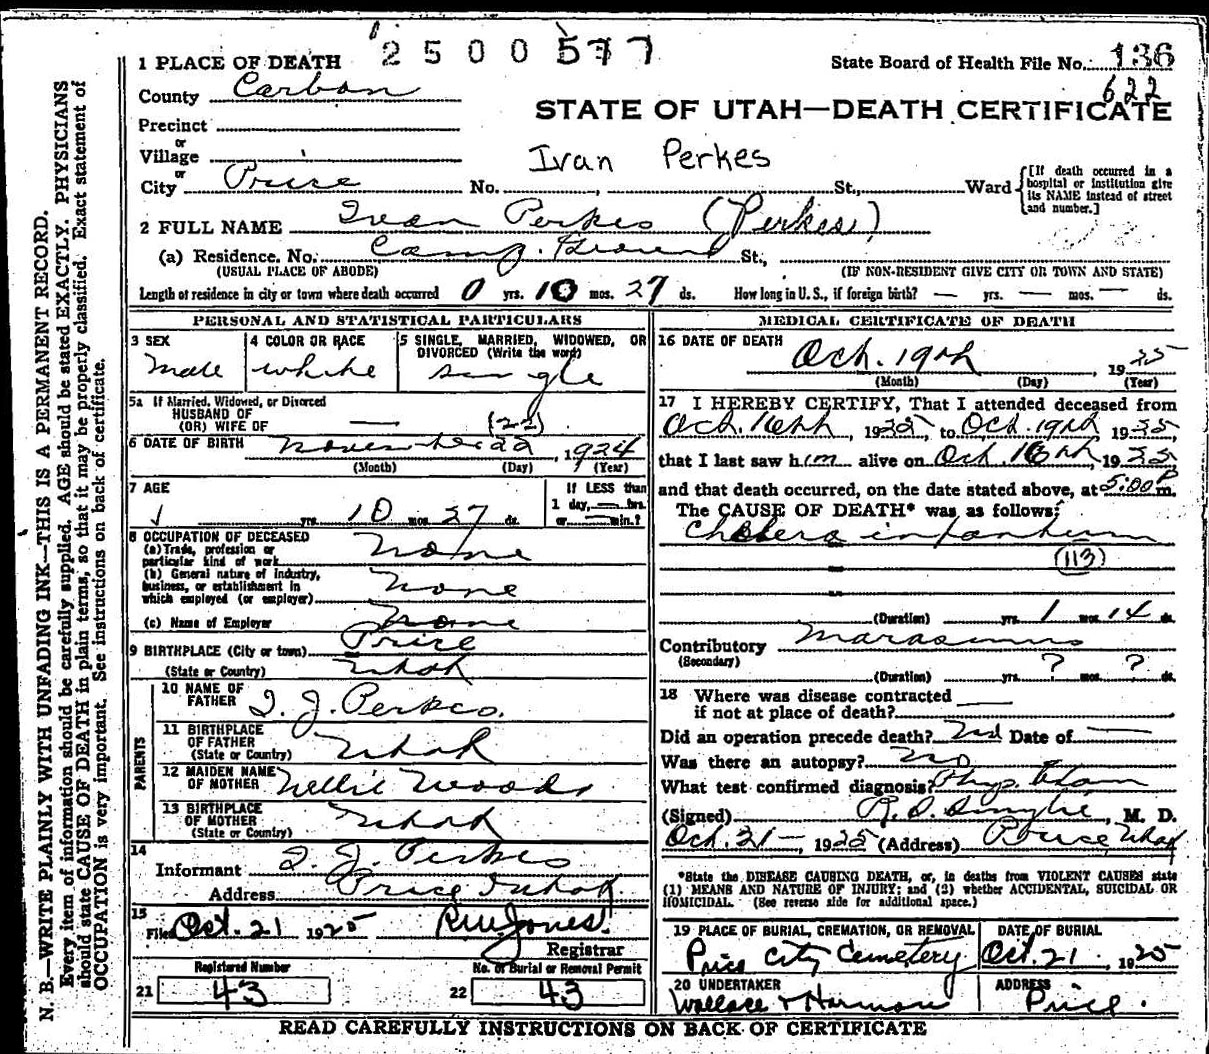 2500577
1 PLACE OF DEATH
State Board of Health File No. 136
622
County Carbon
STATE OF UTAH—DEATH CERTIFICATE
Precinct
or
Village
Ivan Perkes
or
City Price No. , St., Ward
[If death occurred in a hospital or institution give its NAME instead of street and number.]
2 FULL NAME Ivan Perkes (Perkes)
(a) Residence. No. Camp Ground St.,
(USUAL PLACE OF ABODE) (IF NON-RESIDENT GIVE CITY OR TOWN AND STATE)
Length of residence in city or town where death occurred 0 yrs. 10 mos. 27 ds. How long in U. S., if foreign birth? — yrs. — mos. — ds.
PERSONAL AND STATISTICAL PARTICULARS
3 SEX
Male
4 COLOR OR RACE
white
5 SINGLE, MARRIED, WIDOWED, OR DIVORCED (Write the word)
single
5a If Married, Widowed, or Divorced
HUSBAND OF
(OR) WIFE OF —
(22)
6 DATE OF BIRTH November 22, 1924
(Month) (Day) (Year)
7 AGE
yrs. 10 mos. 27 ds.
If LESS than
1 day, — hrs.
or — min.?
8 OCCUPATION OF DECEASED
(a) Trade, profession or
particular kind of work none
(b) General nature of industry,
business, or establishment in
which employed (or employer) none
(c) Name of Employer none
9 BIRTHPLACE (City or town) Price
(State or Country) Utah
PARENTS
10 NAME OF
FATHER I. J. Perkes.
11 BIRTHPLACE
OF FATHER
(State or Country) Utah
12 MAIDEN NAME
OF MOTHER Nellie Woods
13 BIRTHPLACE
OF MOTHER
(State or Country) Utah
14
Informant I. J. Perkes
Address Price Utah.
15
Filed Oct. 21 1925 RW Jones.
Registrar
Registered Number
21 43
No. of Burial or Removal Permit
22 43
MEDICAL CERTIFICATE OF DEATH
16 DATE OF DEATH
Oct. 19th, 1925
(Month) (Day) (Year)
17 I HEREBY CERTIFY, That I attended deceased from
Oct. 16th, 1925, to Oct. 19th 1925,
that I last saw him alive on Oct. 18th, 1925
and that death occurred, on the date stated above, at 5:00 P m.
The CAUSE OF DEATH* was as follows:
Cholera infantum
(113)
(Duration) yrs. 1 mos. 14 ds.
Contributory Marasmus
(Secondary)
(Duration) yrs. ? mos. ? ds.
18 Where was disease contracted
if not at place of death?
Did an operation precede death? Date of —
Was there an autopsy? No
What test confirmed diagnosis? Phys. Exam
(Signed) , M. D.
Oct. 21— 1925 (Address) Price, Utah
*State the DISEASE CAUSING DEATH, or, in deaths from VIOLENT CAUSES state
(1) MEANS AND NATURE OF INJURY; and (2) whether ACCIDENTAL, SUICIDAL OR
HOMICIDAL. (See reverse side for additional space.)
19 PLACE OF BURIAL, CREMATION, OR REMOVAL
Price City Cemetery
DATE OF BURIAL
Oct. 21, 1925
20 UNDERTAKER
Wallace & Harmon
ADDRESS
Price.
READ CAREFULLY INSTRUCTIONS ON BACK OF CERTIFICATE
N. B.—WRITE PLAINLY WITH UNFADING INK—THIS IS A PERMANENT RECORD.
Every item of information should be carefully supplied. AGE should be stated EXACTLY. PHYSICIANS
should state CAUSE OF DEATH in plain terms, so that it may be properly classified. Exact statement of
OCCUPATION is very important. See instructions on back of certificate.